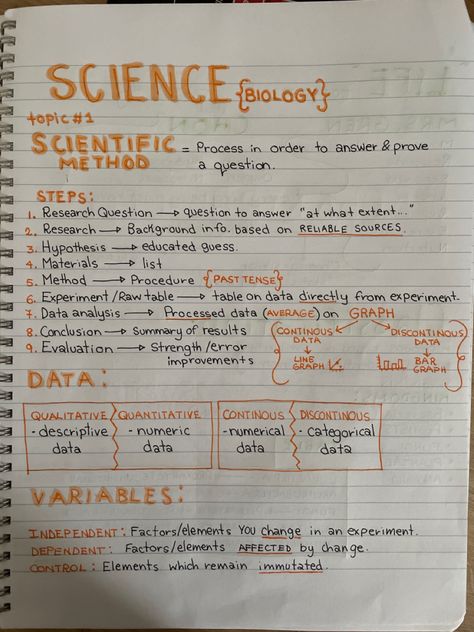 SCIENCE {BIOLOGY}
topic #1
SCIENTIFIC METHOD = Process in order to answer & prove
a question.
STEPS:
1. Research Question → question to answer "at what extent..."
2. Research → Background info. based on RELIABLE SOURCES
3. Hypothesis → educated guess.
4. Materials → list
5. Method → Procedure {PAST TENSE}
6. Experiment/Raw table → table on data directly from experiment.
7. Data analysis → Processed data (AVERAGE) on GRAPH
8. Conclusion → summary of results
9. Evaluation → Strength/error
improvements
CONTINOUS DATA
↳ LINE GRAPH
DISCONTINOUS DATA
↳ BAR GRAPH
DATA:
QUALITATIVE
- descriptive
data
QUANTITATIVE
- numeric
data
CONTINOUS
- numerical
data
DISCONTINOUS
- categorical
data
VARIABLES:
INDEPENDENT: Factors/elements YOU change in an experiment.
DEPENDENT: Factors/elements AFFECTED by change.
CONTROL: Elements which remain immutated.